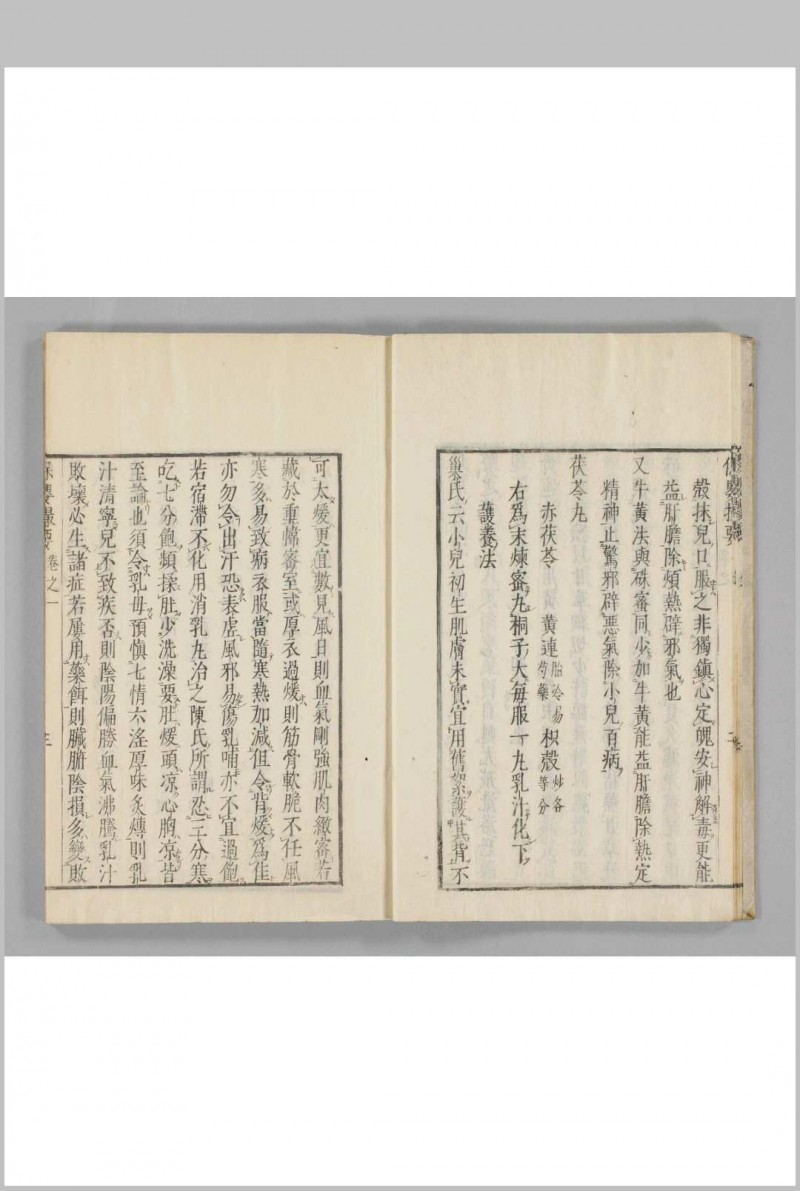 殼抹兒口服之非獨鎮心定魄安神解毒更能
益肝膽除煩熱辟邪氣也
又牛黃法與硃蜜同少加牛黃能益肝膽除熱定
精神止驚邪辟惡氣除小兒百病
茯苓丸
赤茯苓 黃連胎冷易芍藥 枳殼炒各等分
右為末煉蜜丸桐子大每服一丸乳汁化下
護養法
巢氏云小兒初生肌膚未實宜用舊絮護其背不
可太煖更宜數見風日則血氣剛強肌肉緻密若
藏於重幃密室或厚衣過煖則筋骨軟脆不任風
寒多易致病衣服當隨寒熱加減但令背煖為佳
亦勿令出汗恐表虛風邪易傷乳哺亦不宜過飽
若宿滯不化用消乳丸治之陳氏所謂忍三分寒
吃七分飽頻揉肚少洗澡要肚煖頭涼心胸涼皆
至論也須令乳母預慎七情六淫厚味炙煿則乳
汁清寧兒不致疾否則陰陽偏勝血氣沸騰乳汁
敗壞必生諸症若屢用藥餌則臟腑陰損多變敗
保嬰撮要 卷之一 三